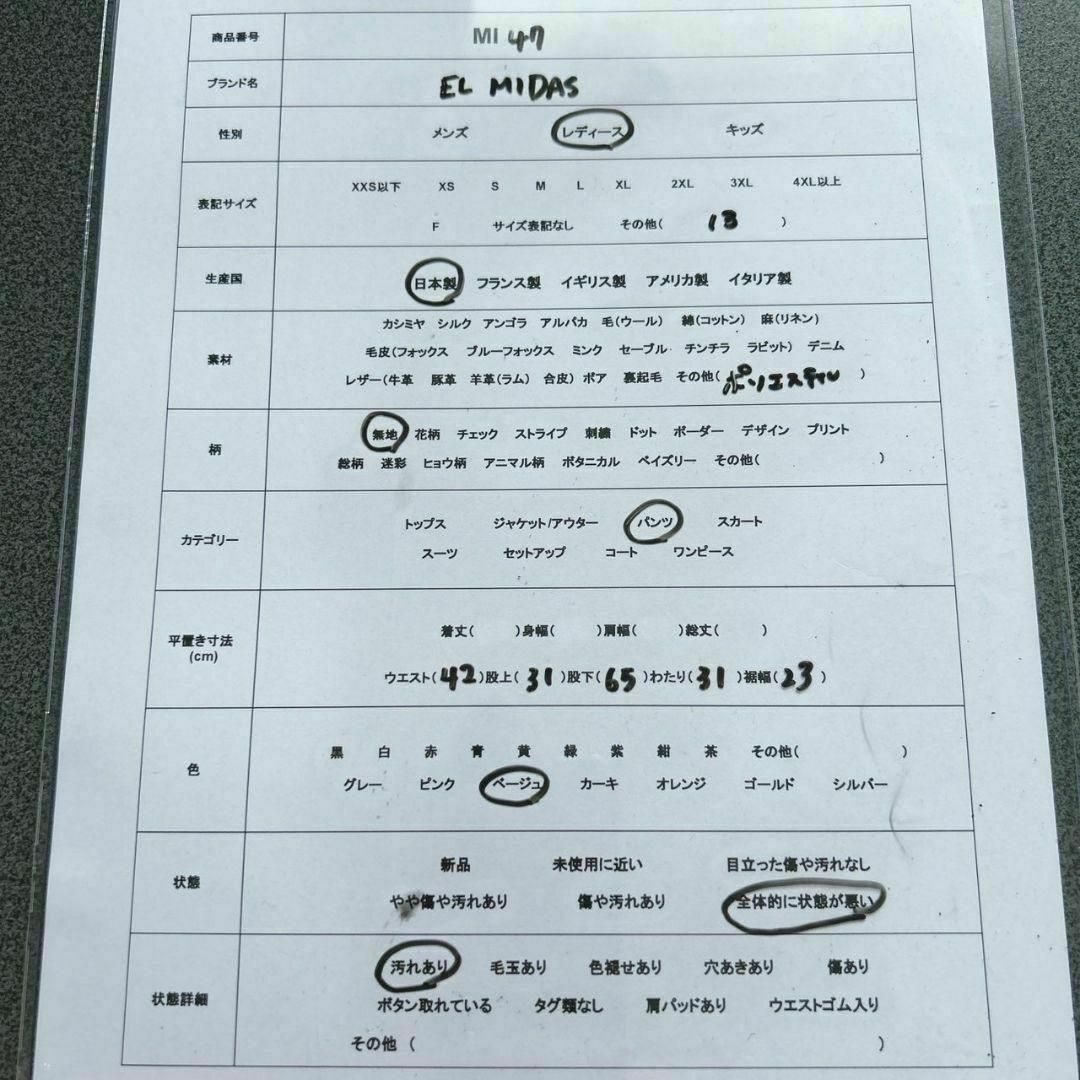 商品番号 MI 47
ブランド名 EL MIDAS
性別 メンズ レディース キッズ
表記サイズ
XXS以下 XS S M L XL 2XL 3XL 4XL以上
F サイズ表記なし その他( 13 )
生産国 日本製 フランス製 イギリス製 アメリカ製 イタリア製
素材
カシミヤ シルク アンゴラ アルパカ 毛(ウール) 綿(コットン) 麻(リネン)
毛皮(フォックス ブルーフォックス ミンク セーブル チンチラ ラビット) デニム
レザー(牛革 豚革 羊革(ラム) 合皮) ボア 裏起毛 その他( ポリエステル )
柄
無地 花柄 チェック ストライプ 刺繍 ドット ボーダー デザイン プリント
総柄 迷彩 ヒョウ柄 アニマル柄 ボタニカル ペイズリー その他( )
カテゴリー
トップス ジャケット/アウター パンツ スカート
スーツ セットアップ コート ワンピース
平置き寸法
(cm)
着丈( )身幅( )肩幅( )総丈( )
ウエスト( 42 )股上( 31 )股下( 65 )わたり( 31 )裾幅( 23 )
色
黒 白 赤 青 黄 緑 紫 紺 茶 その他( )
グレー ピンク ベージュ カーキ オレンジ ゴールド シルバー
状態
新品 未使用に近い 目立った傷や汚れなし
やや傷や汚れあり 傷や汚れあり 全体的に状態が悪い
状態詳細
汚れあり 毛玉あり 色褪せあり 穴あきあり 傷あり
ボタン取れている タグ類なし 肩パッドあり ウエストゴム入り
その他 ( )